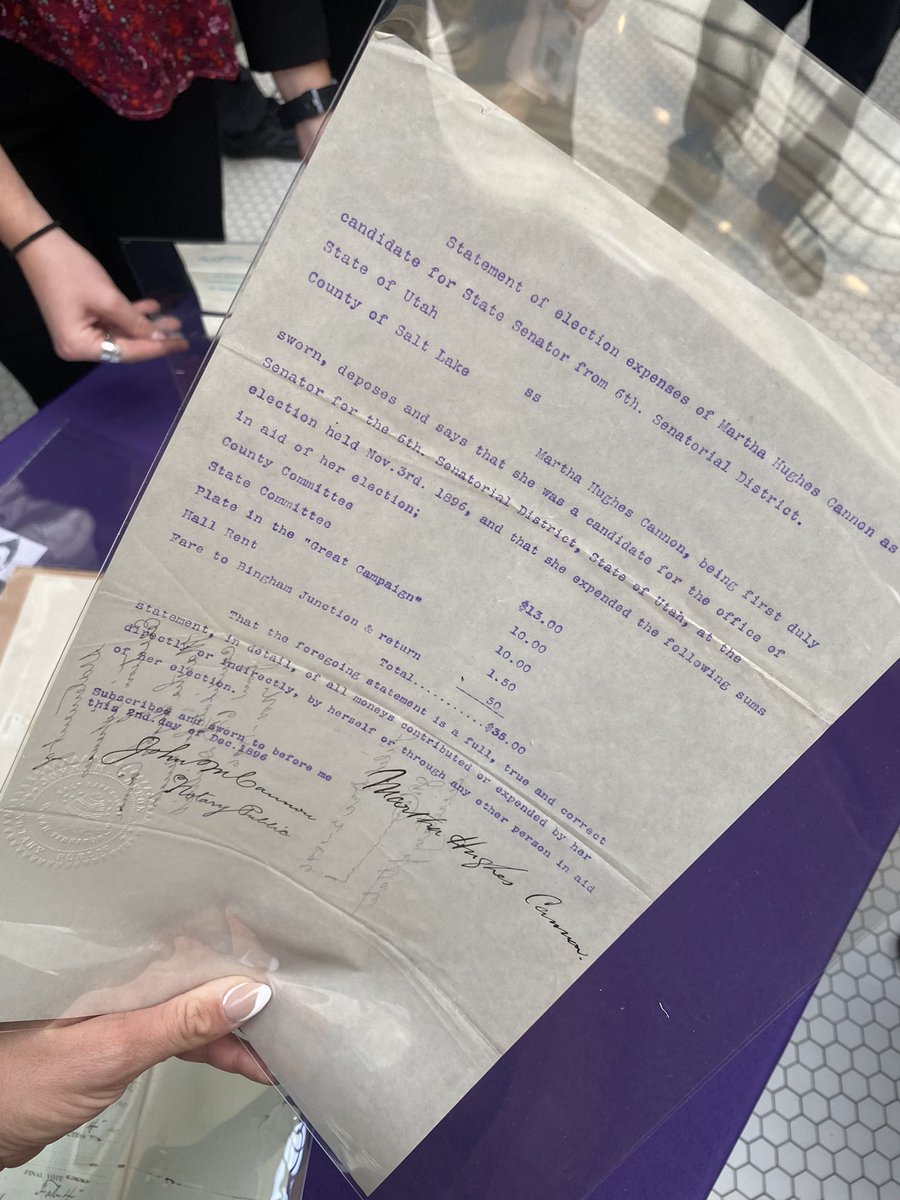 Statement of election expenses of Martha Hughes Cannon as
candidate for State Senator from 6th. Senatorial District.
State of Utah
County of Salt Lake ss
Martha Hughes Cannon, being first duly
sworn, deposes and says that she was a candidate for the office of
Senator for the 6th. Senatorial District, State of Utah, at the
election held Nov.3rd. 1896, and that she expended the following sums
in aid of her election;
County Committee $13.00
State Committee 10.00
Plate in the "Great Campaign" 10.00
Hall Rent 1.50
Fare to Bingham Junction & return .50
Total..........$35.00
That the foregoing statement is a full, true and correct
statement, in detail, of all moneys contributed or expended by her
directly or indirectly, by herself or through any other person in aid
of her election.
Subscribed and sworn to before me
this 2nd day of Dec.1896
John M Cannon
Notary Public
Martha Hughes Cannon.
FINAL VOTE